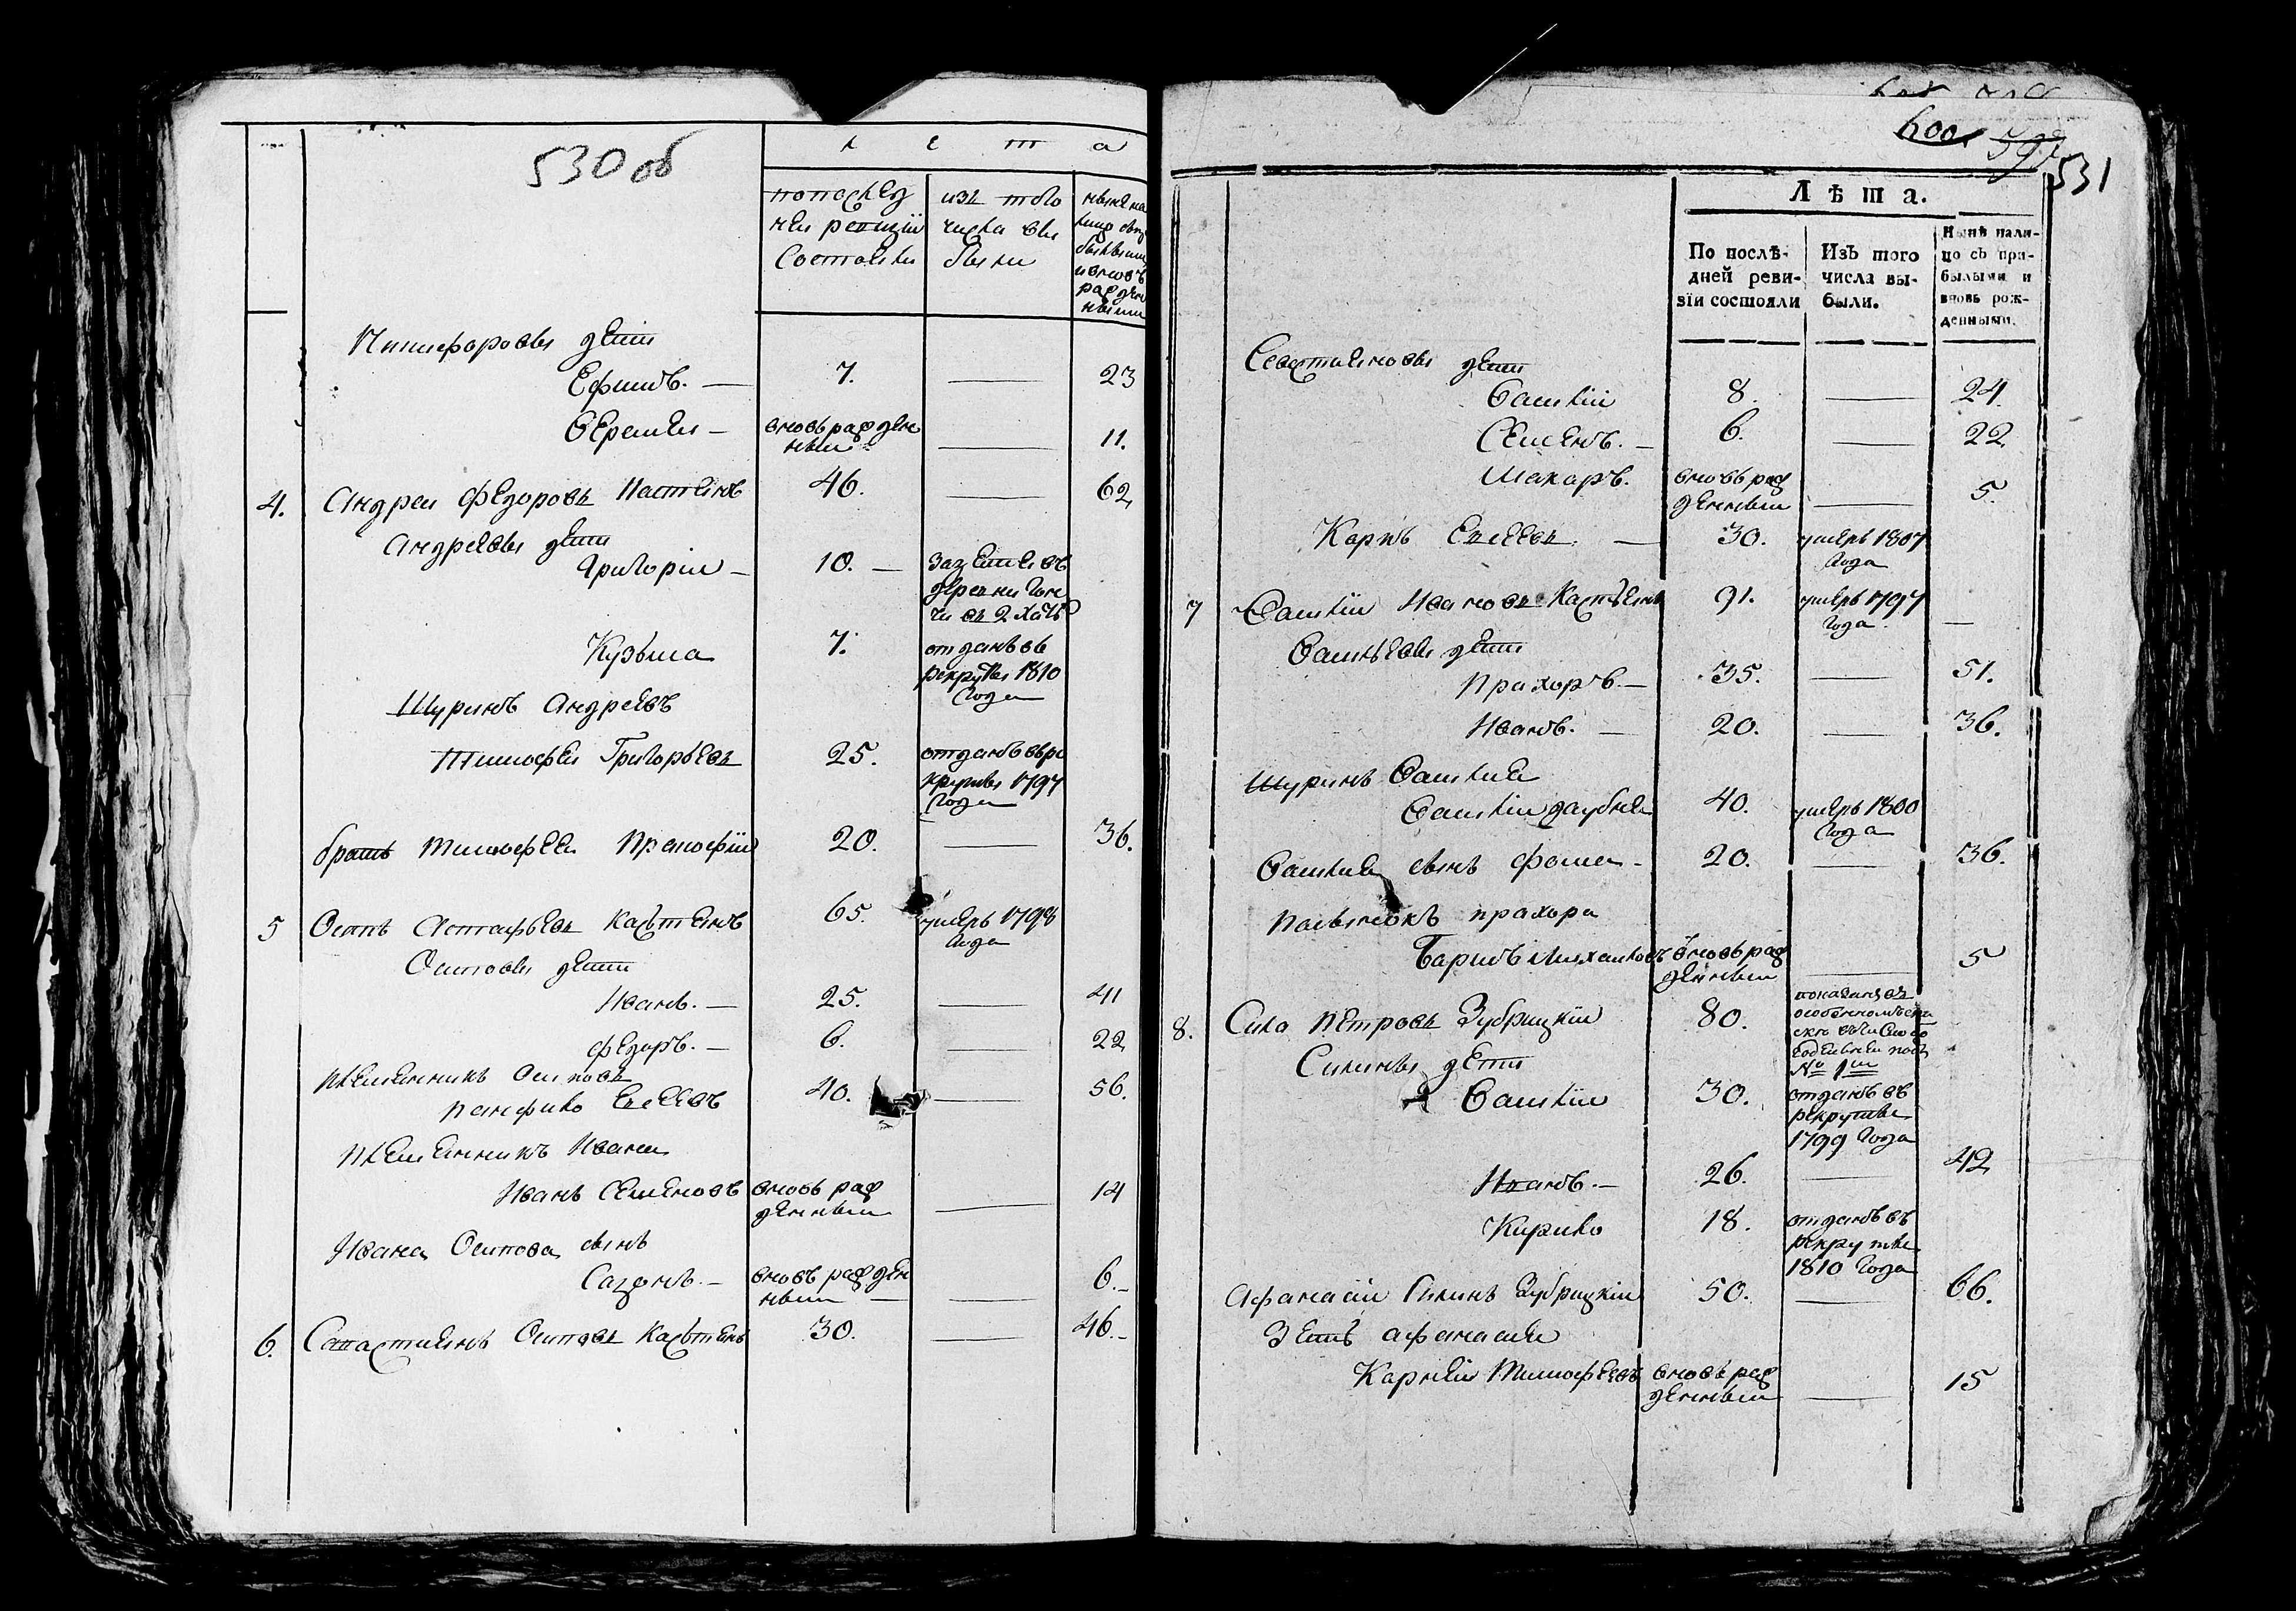 530 об
л е т а
попослед
неи ревизiи
Состояли
изъ того
числа вы
были
ныне на
лицо съпр
былыми
и вновь
рожден
ными
Никифоровы дети
Ефимъ. — 7. — 23
Еремеи — вновь рожден
ныи — 11.
4. Андреи Федоровъ Кастенъ 46. — 62
Андреевы дети
Григории — 10. — зазетемъ
деревни
въ 2 хатъ
Кузьма 7. отданъ въ
рекруты 1810
Года
Шуринъ Андреевъ
Тимофеи Григорьевъ 25. отданъ въ ре
круты 1797
Года
братъ Тимофеев Пракофiи 20. — 36.
5 Осипъ Астафьевъ Кастенъ 65. умеръ 1798
Года
Осиповы дети
Иванъ. — 25. — 41
Федоръ. — 6. — 22
племянникъ Осиповъ
панфило Елесеевъ 40. — 56.
племенникъ Ивана
Иванъ Семеновъ вновь рож
денныи — 14
Ивана Осипова сынъ
Сазонъ. — вновь рожден
ныи — 6. -
6. Савастиянъ Осиповъ Кастенъ 30. — 46. -
600 597 531
Лѣта.
По послѣ-
дней реви-
зiи состояли
Изъ того
числа вы-
были.
Нынѣ нали-
цо съ при-
былыми и
вновь рож-
денными.
Севастияновы дети
Василiи 8. — 24.
Семенъ. — 6. — 22
Макаръ. вновь рож
денныи — 5.
Карпъ Елесеевъ. — 30. умеръ 1807
Года
7 Василiи Ивановъ Кастенъ 91. умеръ 1797
Года. —
Васильевы дети
Прахоръ. — 35. — 51.
Иванъ. — 20. — 36.
Шуринъ Василия
Василiи 40. умеръ 1800
Года
Василия сынъ Фома - 20. — 36.
пасынокъ прахора
Барисъ Михаиловъ вновь рож
денныи — 5
8. Сила Петровъ Зубрицкiи 80. показанъ въ
особенномъ
№ 1м
Силины дети
2 Василiи 30. отданъ въ
рекруты
1799 Года
Иванъ. — 26. — 42
Кирило 18. отданъ въ
рекруты
1810 Года
Афанасiи Силинъ Зубрицкiи 50. — 66.
Зеть афанасия
Карнеи Тимофеевъ вновь рож
денныи — 15